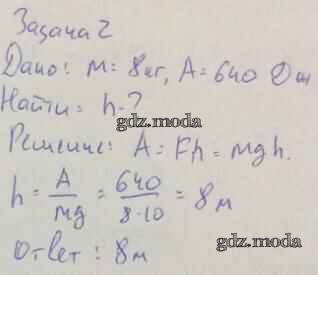 Задача 2
Дано: м = 8 кг, A = 640 Дж
Найти: h - ?
gdz.moda
Решение: A = Fh = mgh.
h = A/mg = 640/8·10 = 8 м
gdz.moda
Ответ: 8 м